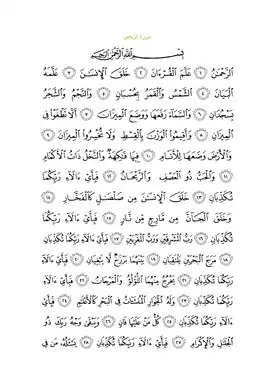 سورة الرحمن
بِسْمِ ٱللَّهِ ٱلرَّحْمَٰنِ ٱلرَّحِيمِ
ٱلرَّحْمَٰنُ ١ عَلَّمَ ٱلْقُرْءَانَ ٢ خَلَقَ ٱلْإِنسَٰنَ ٣ عَلَّمَهُ
ٱلْبَيَانَ ٤ ٱلشَّمْسُ وَٱلْقَمَرُ بِحُسْبَانٍ ٥ وَٱلنَّجْمُ وَٱلشَّجَرُ
يَسْجُدَانِ ٦ وَٱلسَّمَآءَ رَفَعَهَا وَوَضَعَ ٱلْمِيزَانَ ٧ أَلَّا تَطْغَوْا۟ فِى
ٱلْمِيزَانِ ٨ وَأَقِيمُوا۟ ٱلْوَزْنَ بِٱلْقِسْطِ وَلَا تُخْسِرُوا۟ ٱلْمِيزَانَ ٩
وَٱلْأَرْضَ وَضَعَهَا لِلْأَنَامِ ١٠ فِيهَا فَٰكِهَةٌ وَٱلنَّخْلُ ذَاتُ ٱلْأَكْمَامِ
١١ وَٱلْحَبُّ ذُو ٱلْعَصْفِ وَٱلرَّيْحَانُ ١٢ فَبِأَىِّ ءَالَآءِ رَبِّكُمَا
تُكَذِّبَانِ ١٣ خَلَقَ ٱلْإِنسَٰنَ مِن صَلْصَٰلٍ كَٱلْفَخَّارِ ١٤
وَخَلَقَ ٱلْجَآنَّ مِن مَّارِجٍ مِّن نَّارٍ ١٥ فَبِأَىِّ ءَالَآءِ رَبِّكُمَا
تُكَذِّبَانِ ١٦ رَبُّ ٱلْمَشْرِقَيْنِ وَرَبُّ ٱلْمَغْرِبَيْنِ ١٧ فَبِأَىِّ ءَالَآءِ رَبِّكُمَا تُكَذِّبَانِ
١٨ مَرَجَ ٱلْبَحْرَيْنِ يَلْتَقِيَانِ ١٩ بَيْنَهُمَا بَرْزَخٌ لَّا يَبْغِيَانِ ٢٠ فَبِأَىِّ ءَالَآءِ
رَبِّكُمَا تُكَذِّبَانِ ٢١ يَخْرُجُ مِنْهُمَا ٱللُّؤْلُؤُ وَٱلْمَرْجَانُ ٢٢ فَبِأَىِّ ءَالَآءِ
رَبِّكُمَا تُكَذِّبَانِ ٢٣ وَلَهُ ٱلْجَوَارِ ٱلْمُنشَـَٔاتُ فِى ٱلْبَحْرِ كَٱلْأَعْلَٰمِ ٢٤ فَبِأَىِّ
ءَالَآءِ رَبِّكُمَا تُكَذِّبَانِ ٢٥ كُلُّ مَنْ عَلَيْهَا فَانٍ ٢٦ وَيَبْقَىٰ وَجْهُ رَبِّكَ ذُو
ٱلْجَلَٰلِ وَٱلْإِكْرَامِ ٢٧ فَبِأَىِّ ءَالَآءِ رَبِّكُمَا تُكَذِّبَانِ ٢٨ يَسْـَٔلُهُۥ مَن فِى